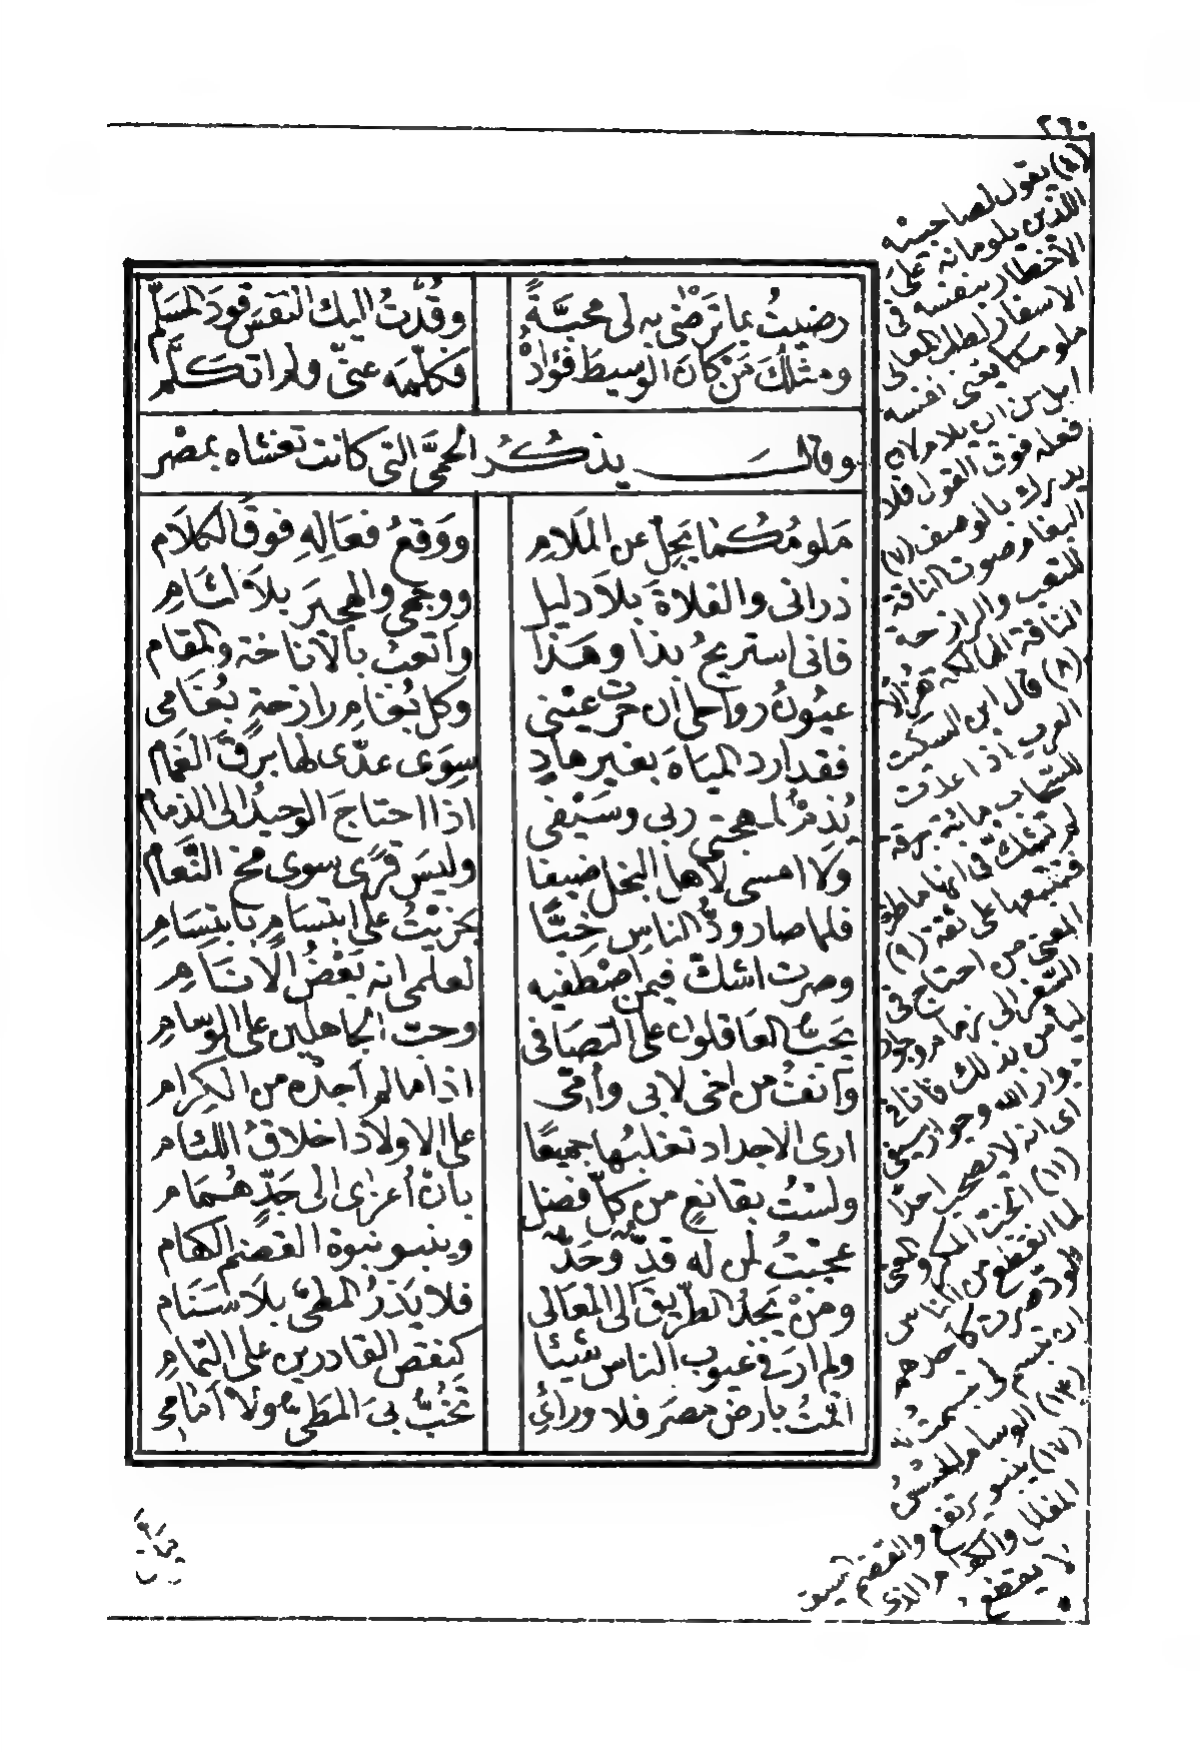 ٢٦٠
رضيتُ بما تَرضٰى به لى محبَّةً وقُدْتُ اليك النفسَ قودَ المسَلِّمِ
ومثلُكَ مَن كانَ الوسيطَ فؤادُهُ فكلّمَه عنّى ولم اتكلَّم
وقال يذكُر الحمىَّ التى كانت تغشاه بمصر
مَلومُكُما يَجِلّ عن المَلامِ ووَقعُ فعَالِهِ فوقَ الكلامِ
ذرانى والفلاةَ بلا دليل ووجهى والهجيرَ بلا لثامِ
فانى استريحُ بذا وهذا واتعبُ بالاناخة والمقام
عيُونُ رواحلى ان حرتُ عينى وكل بُغَامِ رازحةٍ بُغامى
فقد ارد المياهَ بغير هادٍ سِوَى عدّى لها برقَ الغمام
يُذِمُّ لمهجتى ربى وسَيفى اذا احتاجَ الوحيدُ الى الذمام
ولا امسى لاهل البخل ضيفا وليسَ قرًى سوى مخ النَّعام
فلما صار ودُّ الناسِ خِبًّا جزيْتُ على ابتسَامٍ بابتسام
وصرت اشكّ فيمن اصْطفيه لعلمى انه بَعْضُ الانَامِ
يحبّ العاقلون على التصافى وحبّ الجاهلين على الوسام
وآنفُ من اخى لابى وأمّى اذا ما لم اجده من الكرام
ارى الاجداد تغلبُها جميعًا على الاولاد اخلاقُ اللئام
ولستُ بقانعٍ من كلّ فضل بانْ أُعزٰى الى جدٍّ هُمَام
عجبتُ لمن له قدّ وحَدّ وينبو نبوة القضم الكهام
ومَنْ يَجدُ الطّريقَ الى المعَالى فلا يَذرُ المطىّ بلا سَنَام
ولم ارَ فى عيوب الناس شيئا كنقص القادرين على التمام
اقمتُ بارض مصرَ فلا ورائى تخُبُّ بىَ المَطىّ ولا اَمَامى
(٤) يقول لصاحبيه
اللذين يلومانه على
الاخطار بنفسه فى
الاسفار لطلب المعالى
ملومكما يعنى نفسه
اجل من ان يلام لان
فعله فوق القول فلا
يدرك بالوصف (٧)
البغام صوت الناقة
للتعب والرازحة
الناقة الهالكة هزالا
(٨) قال ابن السكيت
العرب اذا عدت
للسحاب مائة برقة
لم تشك فى انها ماطرة
فتتبعها على ثقة (٩)
المعنى من احتاج فى
السفر الى ذمام وجوار
ليأمن بذلك فانا فى
جوار الله وجوار سيفى
اى انه لا يصحب احدا
(١١) الخب المكر
لما انقطع من الناس
الود صرت كاحدهم
ان تبسم لى تبسمت له
(١٣) الوسام الحسن
(١٧) ينبو يرتفع والقضم السيف
المفلل والكهام الذى
لا يقطع